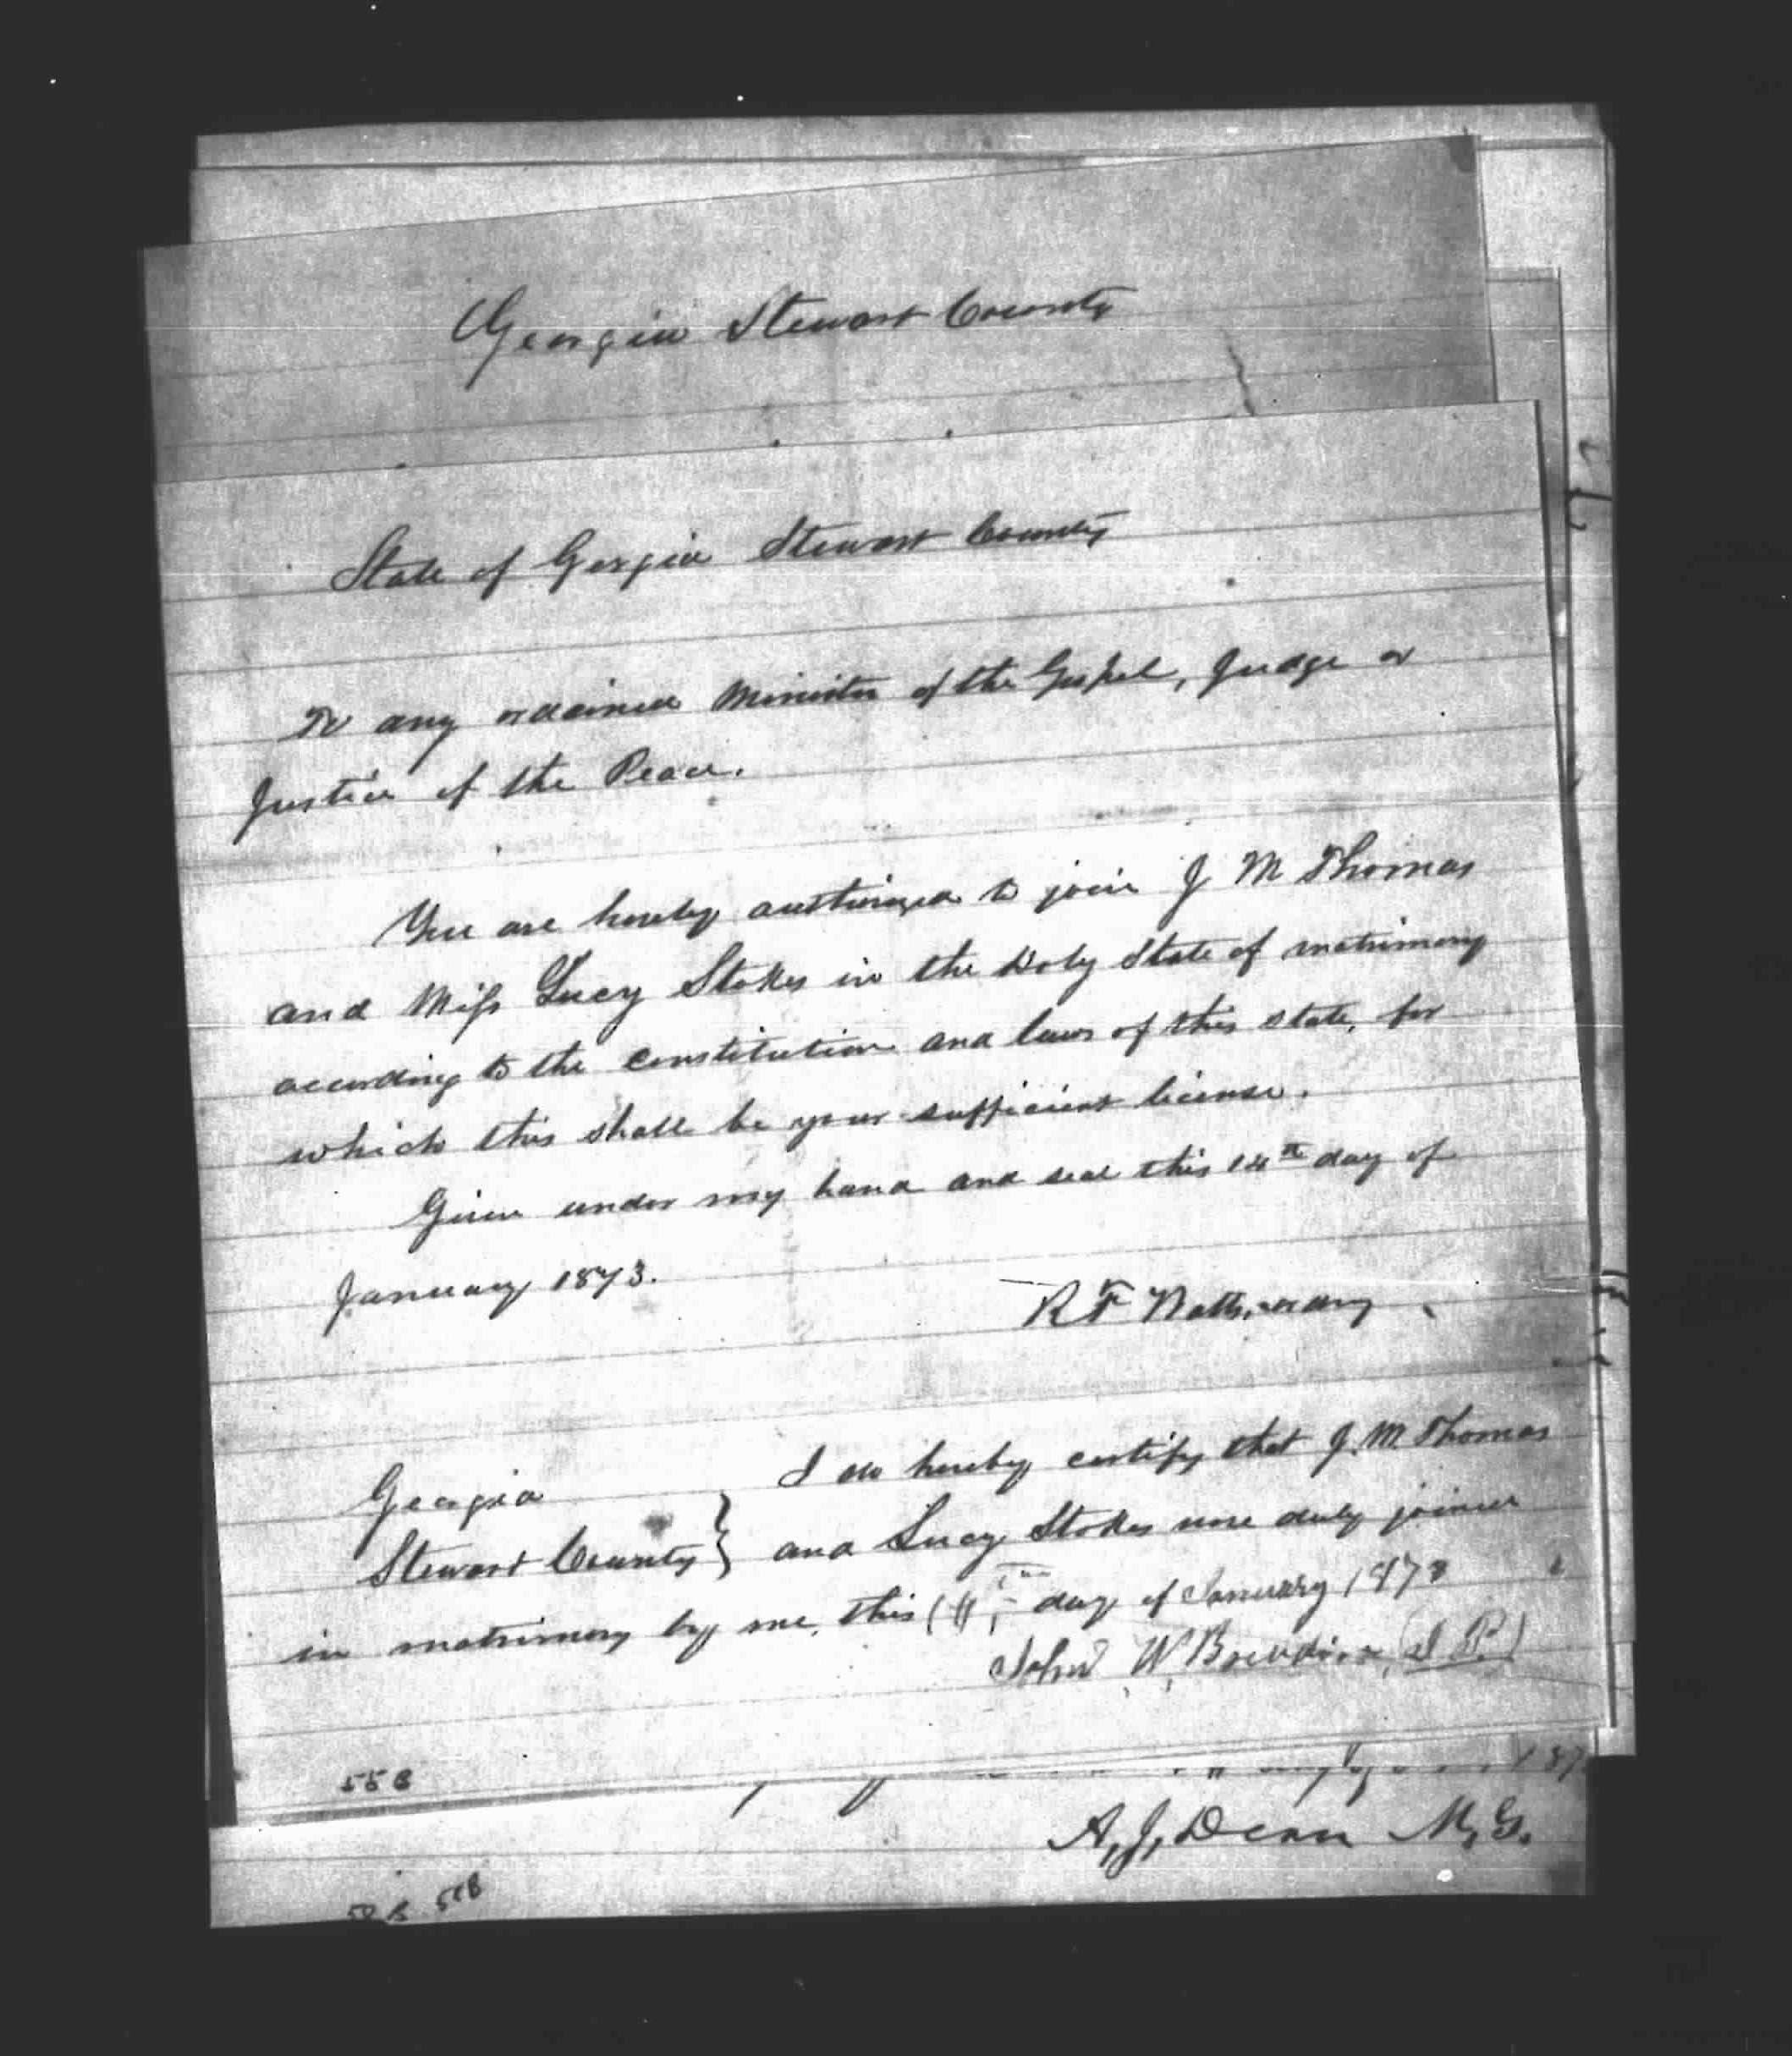 Georgia Stewart County
State of Georgia Stewart County
To any ordained Minister of the Gospel, Judge or
Justice of the Peace.
You are hereby authorized to join J M Thomas
and Miss Lucy Stokes in the Holy State of matrimony
according to the constitution and laws of this state, for
which this shall be your sufficient license.
Given under my hand and seal this 14th day of
January 1873.
R F
Georgia
Stewart County } I do hereby certify that J. M Thomas
and Lucy Stokes were duly joined
in matrimony by me, this day of January 1873
John W (J P.)
558
A, J, Dean M, G.